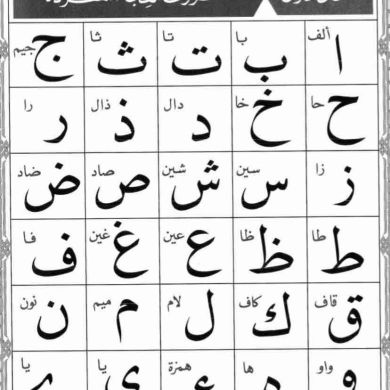 ا ألف ب با ت تا ث ثا ج جيم
ح حا خ خا د دال ذ ذال ر را
ز زا س سين ش شين ص صاد ض ضاد
ط طا ظ ظا ع عين غ غين ف فا
ق قاف ك كاف ل لام م ميم ن نون
و واو ه ها ء همزة ي يا يا